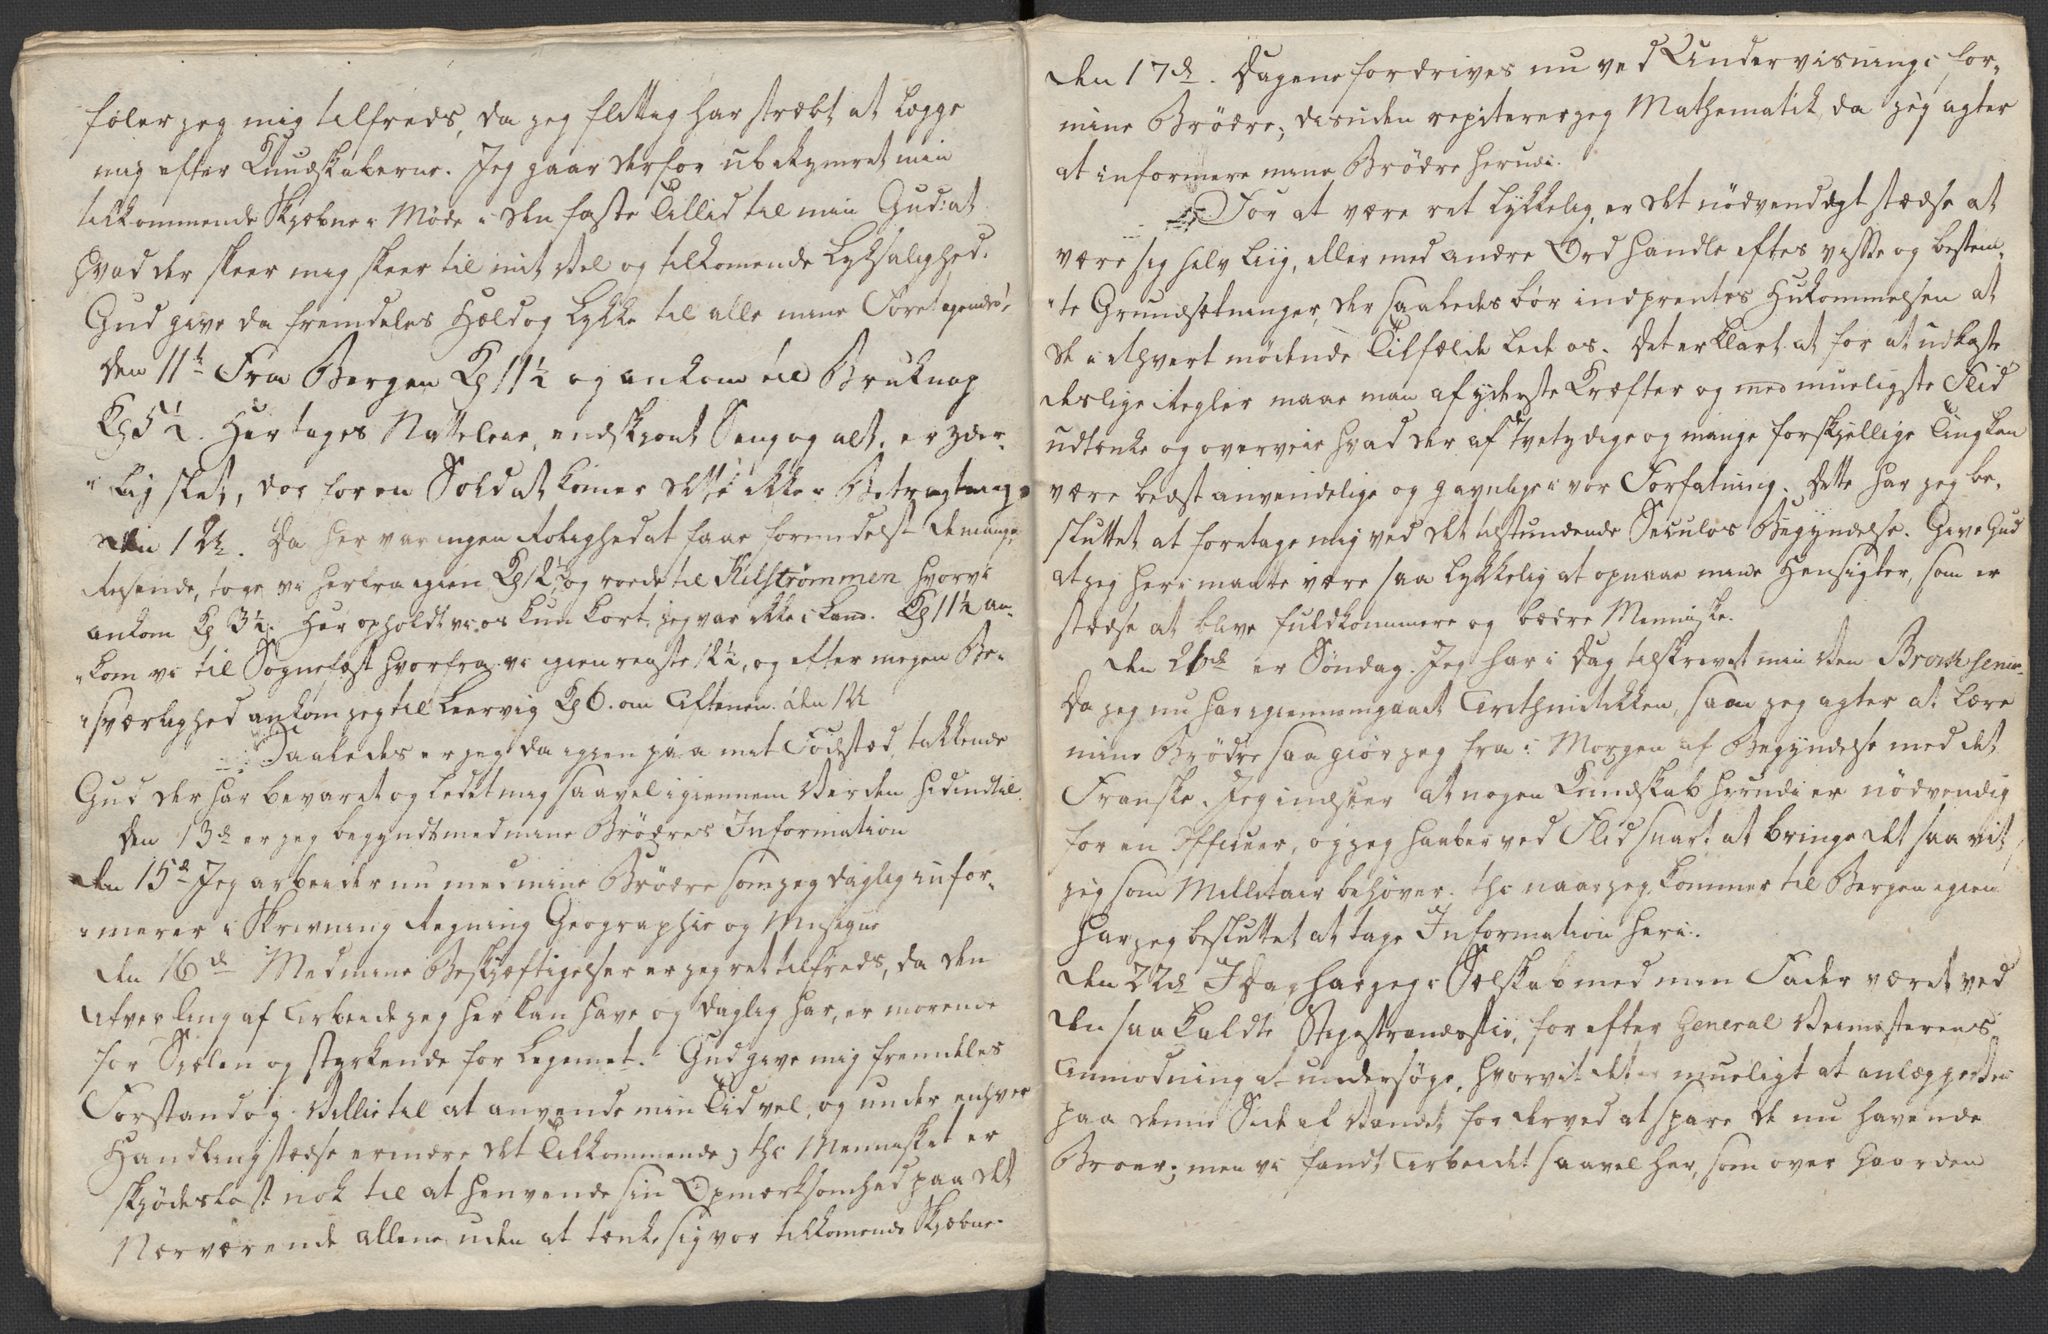 föler jeg mig tilfreds, da jeg flittig har stræbt at lægge
mig efter Kundskaberne. Jeg gaar derfor ubekymret min
tilkommende Skjæbne i Møde i den faste Tillid til min Gud: at
hvad der skeer mig skeer til mit Vel og tilkomende Lyksalighed.
Gud give da fremdeles Held og Lykke til alle mine Foretagender
Den 11te Fra Bergen Kl 11½ og ankom til Bruknap
Kl 5½. Her tages Natteleie, endskjønt Seng og alt er ynder¬
lig slet, dog for en Soldat komer dette ikke i Betragtning.
Den 12te. Da her var ingen Rolighed at faae formedelst de mange
Reisende, toge vi herfra igien Kl 12½ og roede til Kilstrømmen hvor vi
ankom Kl 3½. Her opholdt vi os kun kort, jeg var ikke i Land. Kl 11½ an¬
kom vi til Sognefæst hvorfra vi igien reiste 12½, og efter megen Be¬
sværlighed ankom jeg til Leervig Kl 6. om Aftenen. den 12
Saaledes er jeg da igien paa mit Födested, takkende
Gud der har bevaret og ledet mig saavel igiennem Verden hidindtil.
Den 13de er jeg begyndt med mine Brödres Information
Den 15de Jeg arbeider nu med mine Brödre som jeg daglig infor¬
merer i Skrivning Regning Geographie og Musique
Den 16de Med mine Beskjæftigelser er jeg ret tilfreds, da den
Afvexling af Arbeide jeg her kan have og daglig har, er morende
for Sjelen og styrkende for Legemet. Gud give mig fremdeles
Forstand og Villie til at anvende min Tid vel, og under enhver
Handling stedse erindre det Tilkommende; thi Mennesket er
skjödeslöst nok til at henvende sin Opmærksomhed paa det
Nærværende allene uden at tænke sig vor tilkomende Skjæbne.
Den 17de. Dagene fordrives nu ved Undervisning for
mine Brödre; desuden repeterer jeg Mathematik, da jeg agter
at informere mine Brödre herudi.
For at være ret lykkelig, er det nödvendigt stedse at
være sig selv liig, eller med andre Ord handle efter visse og bestem¬
te Grundsætninger, der saaledes bör indprentes Hukommelsen at
de i ethvert mödende Tilfælde lede os. Det er klart at for at udkaste
deslige Regler maae man af yderste Kræfter og med mueligste Flid
udtænke og overveie hvad der af tvetydige og mange forskjellige Ting kan
være bedst anvendelige og gavnlige i vor Forfatning. Dette har jeg be¬
sluttet at foretage mig ved det tilstundende Seculos Begyndelse. Give Gud
at jeg heri maatte være saa lykkelig at opnaae mine Hensigter, som er
stedse at blive fuldkomnere og bedre Menniske.
Den 21de er Söndag. Jeg har i Dag tilskrevet min Ven
Da jeg nu har igiennemgaaet Arithmetikken, saa jeg agter at lære
mine Brödre saa giör jeg fra i Morgen af Begyndelse med det
Franske. Jeg indseer at nogen Kundskab herudi er nödvendig
for en Officeer, og jeg haaber ved Flid snart at bringe det saa vit
jeg som Millitair behöver. thi naar jeg kommer til Bergen igien
har jeg besluttet at tage Information heri.
Den 22de I Dag har jeg i Selskab med min Fader været ved
den saa kaldte, for efter General Veimesterens
Anmodning at undersöge, hvorvit det er mueligt at anlægge
paa denne Side af Vandet, for derved at spare de nu havende
Broer; men vi fandt Arbeidet saavel her, som over Gaarden